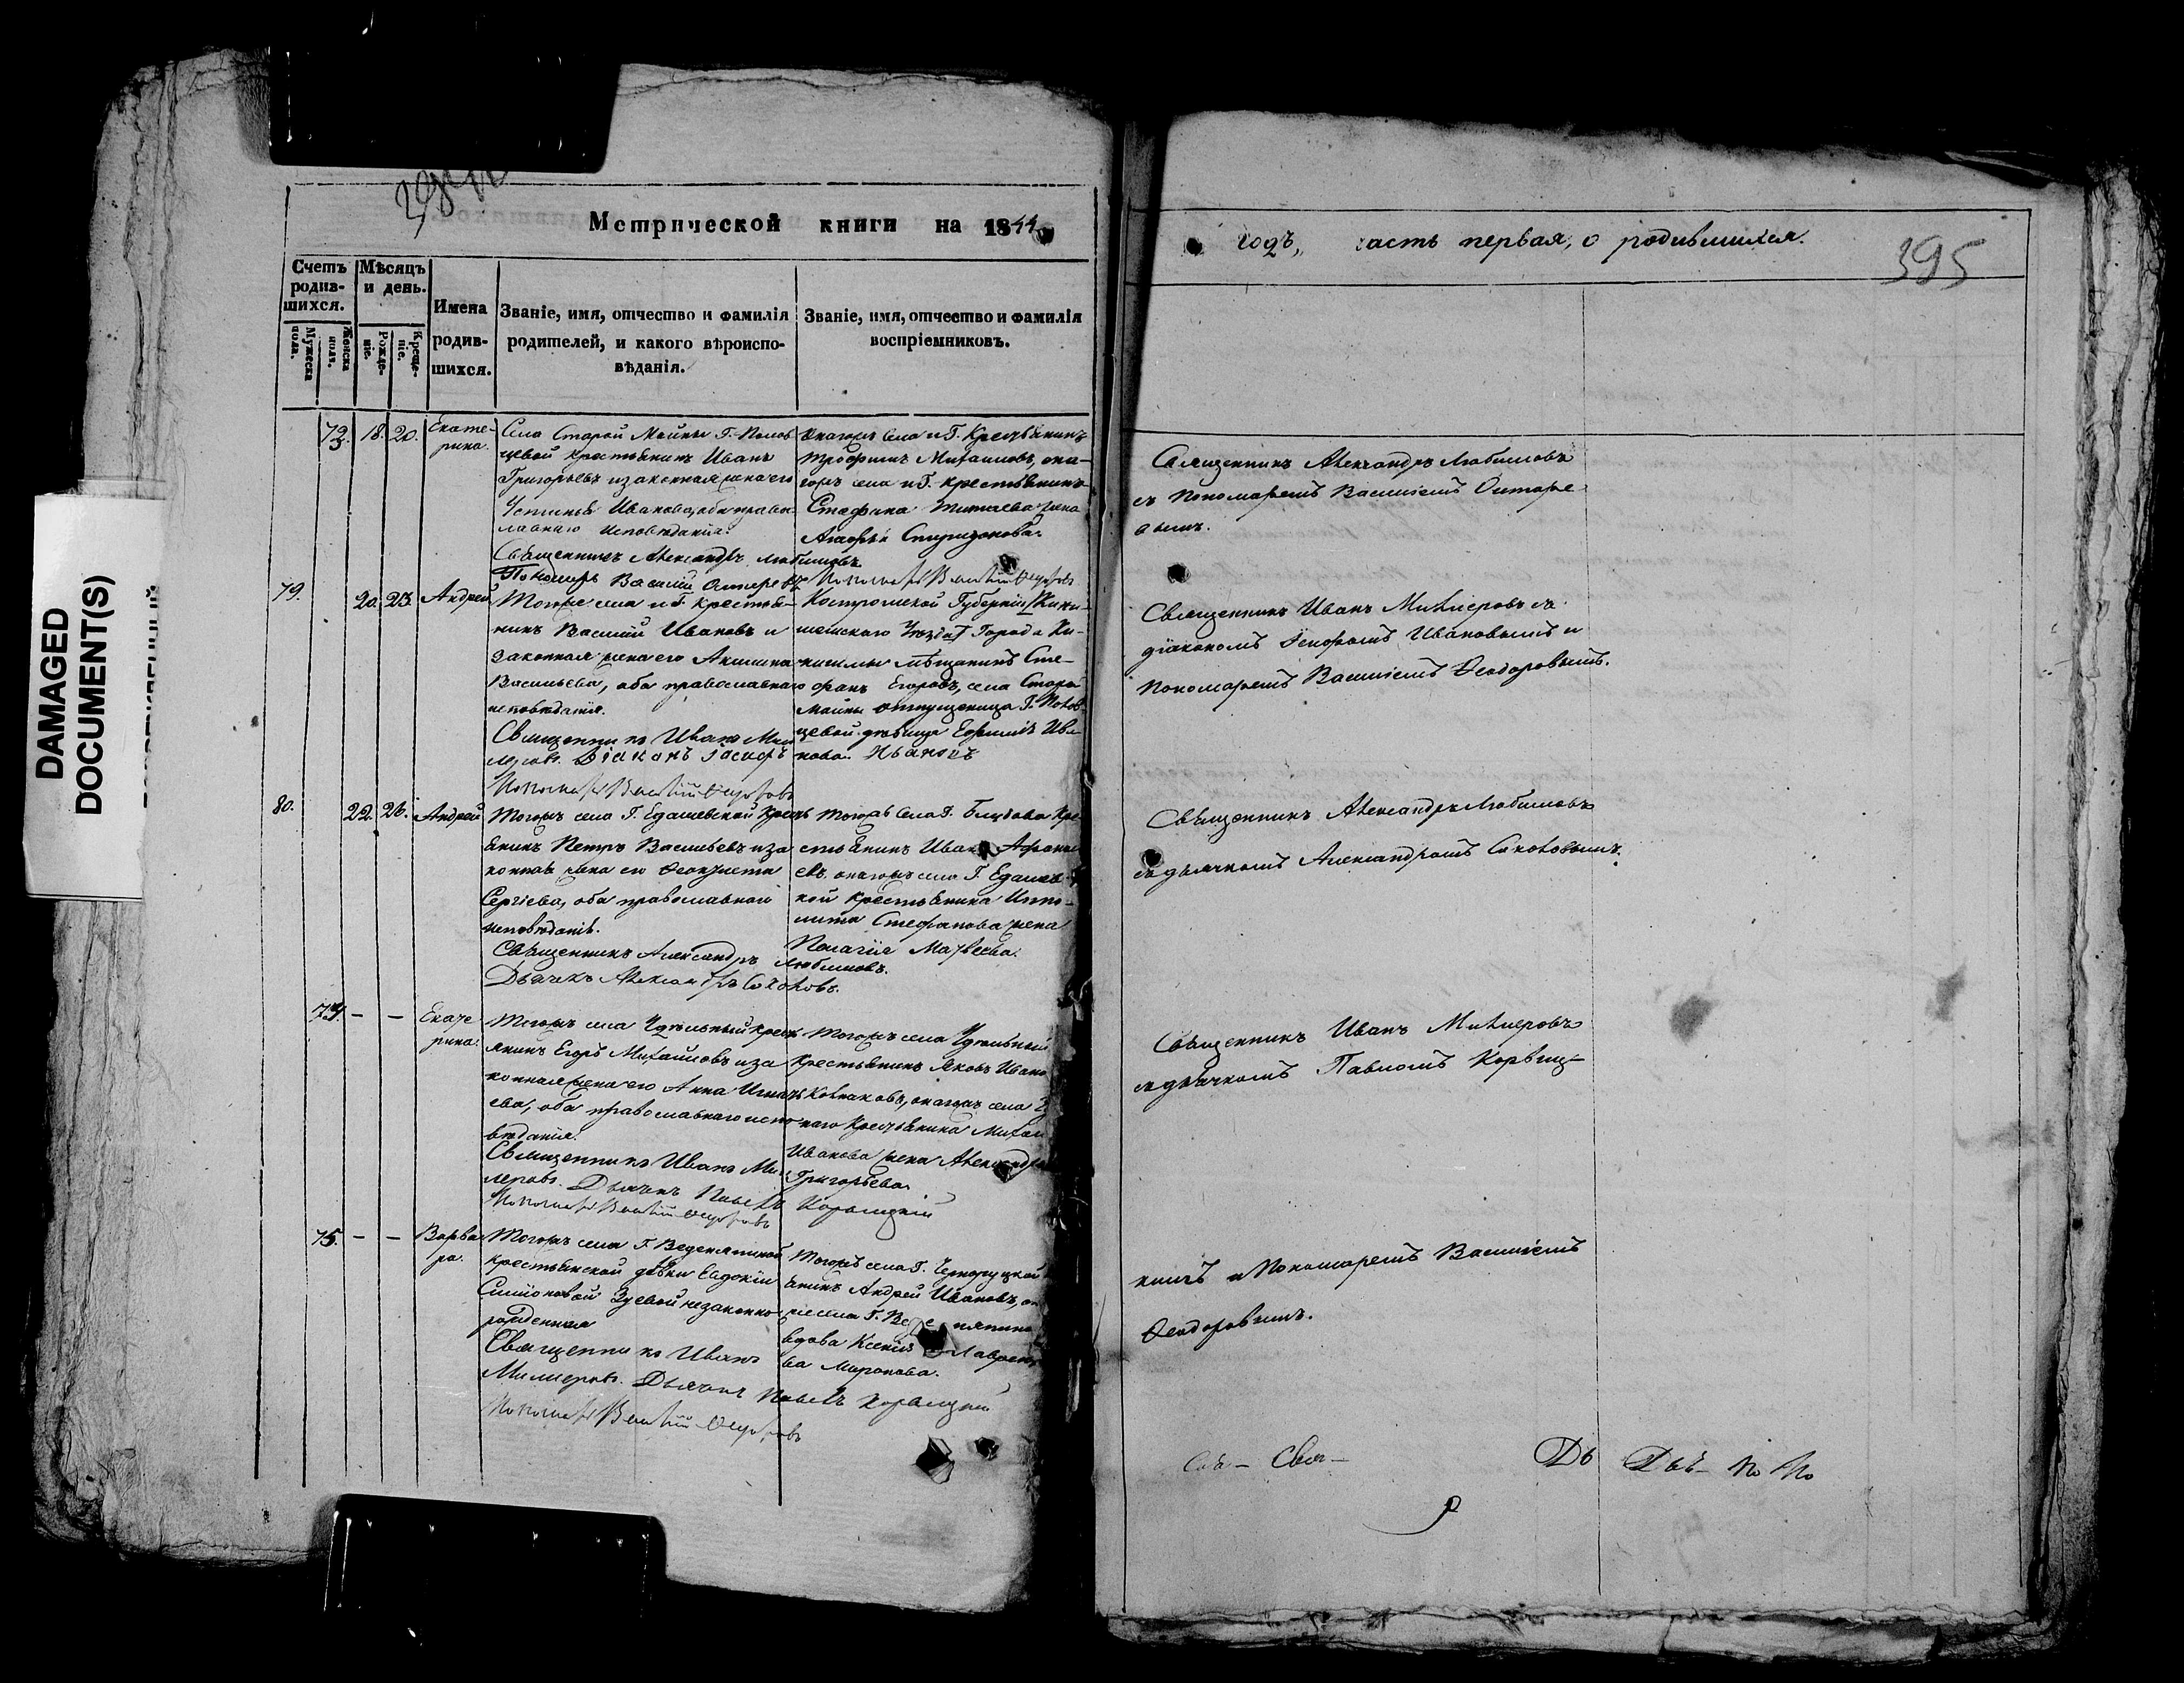 DAMAGED
DOCUMENT(S)
Метрической книги на 1844
Счетъ родив-шихся.
Мужеска пола.
Женска пола.
Мѣсяцъ и день.
Рожде-ніе.
Креще-ніе.
Имена родив-шихся.
Званіе, имя, отчество и фамилія родителей, и какого вѣроиспо-вѣданія.
Званіе, имя, отчество и фамилія воспріемниковъ.
73. 18. 20. Екате-
рина.
Села Старой Майны Г. Полов
цевой крестьянинъ Иванъ
Григорьевъ и законная жена его
Устинья Иванова, оба право
славнаго исповѣданія.
Священникъ Александръ Любимовъ
Пономарь Василій
Тогожъ села и Г. крестьянинъ
Трофимъ Михаиловъ, она-
гожъ села и Г. крестьянина
Стефана жена
Агафья Спиридонова.
79. 20. 23. Андрей
Тогоже села и Г. крестья-
нинъ Василій Ивановъ и
законная жена его Акилина
Васильева, оба православнаго
исповѣданія.
Священникъ Иванъ Мил
леровъ. Діаконъ Іосифъ Ивановъ
Пономарь Василій Ѳедоровъ
Костромской Губерніи Кине-
шемскаго Уѣзда Города Ки-
нешмы мѣщанинъ Сте-
фанъ Егоровъ, села Старой
Майны отпущеница Г. Полов-
цевой дѣвица Ефимія Ива-
нова.
80. 22. 26. Андрей
Тогожъ села Г. Едашевской крест
янинъ Петръ Васильевъ и за
конная жена его Ѳеоктиста
Сергіева, оба православнаго
исповѣданія.
Священникъ Александръ Любимовъ.
Дьячекъ Александръ Соколовъ.
Тогожъ села Г. Блудова кре
стьянинъ Иванъ Афанась
евъ, онагожъ села Г. Едашевс
кой крестьянина Иппо-
лита Стефанова жена
Пелагія Матвѣева.
74. — — Екате
рина.
Тогожъ села Удѣльный крест
янинъ Егоръ Михайловъ и за
конная жена его Анна Игнать
ева, оба православнаго испо
вѣданія.
Священникъ Иванъ Мил
леровъ. Дьячекъ Павелъ
Пономарь Василій Ѳедоровъ
Тогожъ села Удѣльный
крестьянинъ Яковъ Ивано
Колпаковъ, онагожъ села
наго крестьянина Михаи
Иванова жена Александра
Григорьева.
75. — — Варва
ра.
Тогожъ села Г. Веденяпиной
крестьянской дѣвки Евдокіи
Симіоновой Зуевой незаконно
рожденная
Священникъ Иванъ
Миллеровъ. Дьячекъ Павелъ
Пономарь Василій Ѳедоровъ
Тогожъ села Г.
янинъ Андрей Ивановъ,
села Г.
вдова Ксенія Лаврентье
ва Миронова.
годъ, часть первая, о родившихся.
395
Священникъ Александръ Любимовъ
съ пономаремъ Василіемъ
Священникъ Иванъ Миллеровъ съ
діакономъ Іосифомъ Ивановымъ и
пономаремъ Василіемъ Ѳеодоровымъ.
Священникъ Александръ Любимовъ
съ дьячкомъ Александромъ Соколовымъ.
Священникъ Иванъ Миллеровъ
съ дьячкомъ Павломъ
кимъ и Пономаремъ Василіемъ
Ѳеодоровымъ.